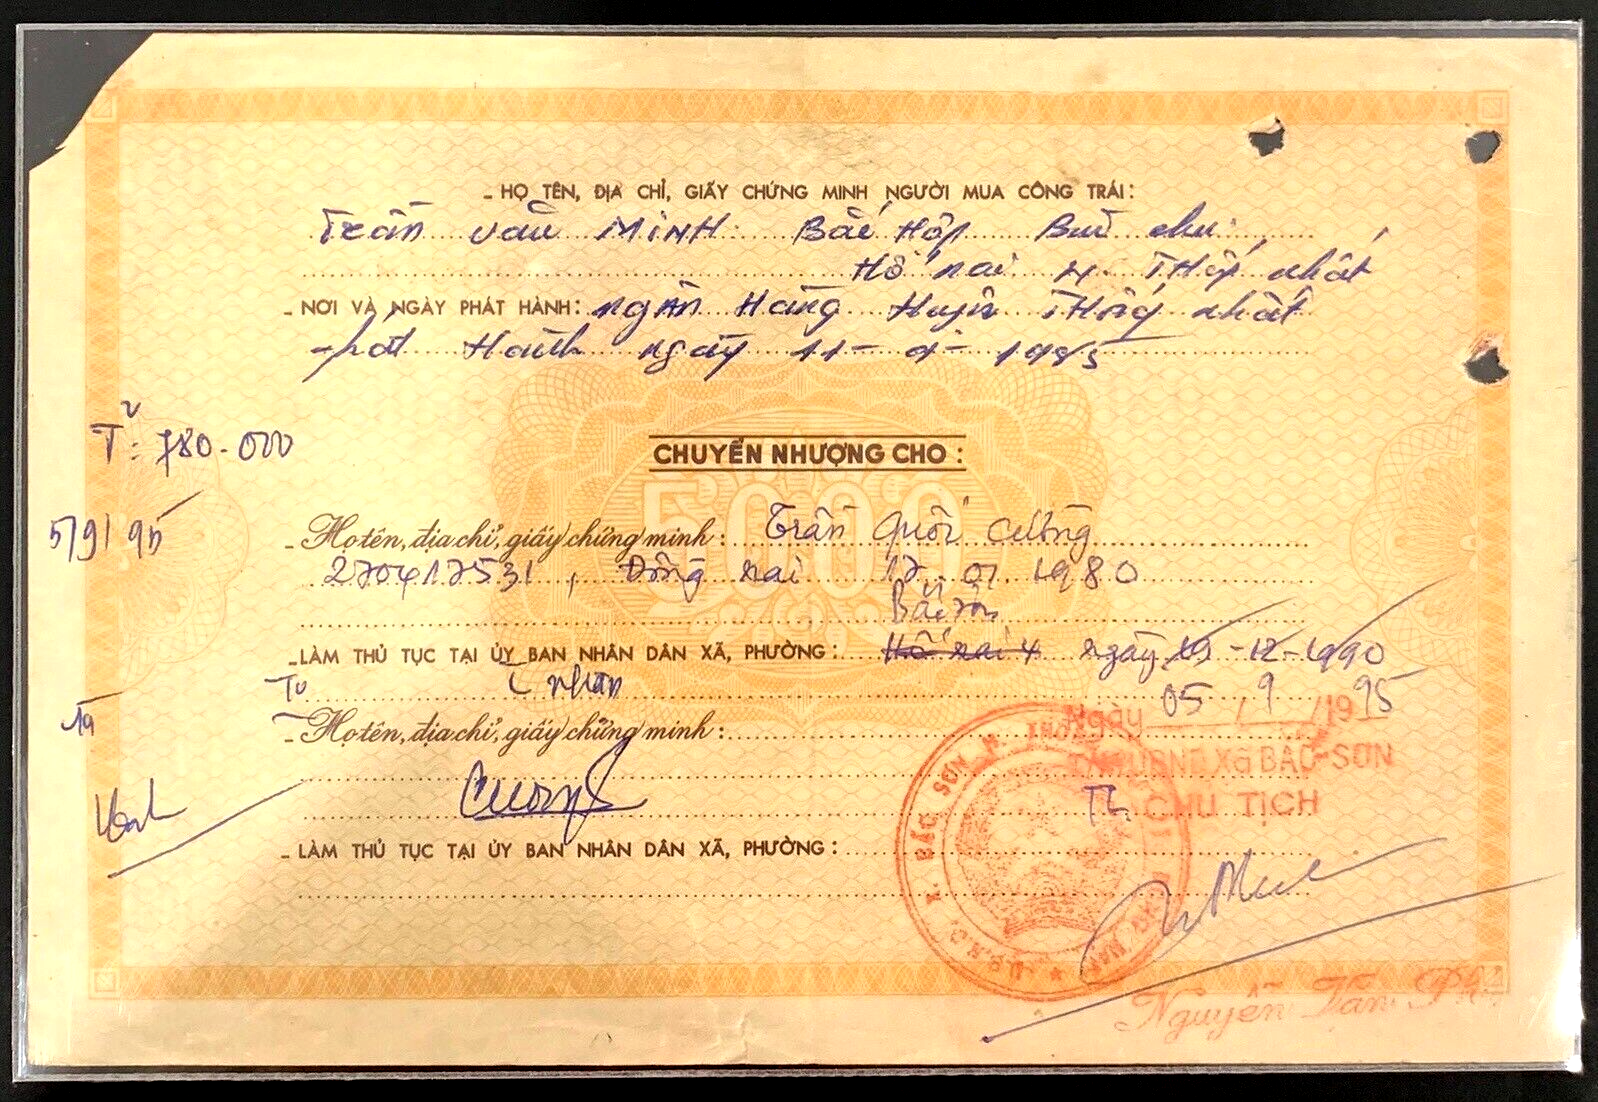 _ HỌ TÊN, ĐỊA CHỈ, GIẤY CHỨNG MINH NGƯỜI MUA CÔNG TRÁI:
Trần Văn MINH Bắc Hợp Bùi chu
Hố nai 4 Thống nhất
_ NƠI VÀ NGÀY PHÁT HÀNH: Ngân Hàng Huyện Thống nhất
phát Hành ngày 11-9-1985
T: 780.000
CHUYỂN NHƯỢNG CHO:
5000
5/9/95
_ Họ tên, địa chỉ, giấy chứng minh: Trần Quốc Cường
270417531, Đồng nai 17.01.1980
Bắc Sơn
_ LÀM THỦ TỤC TẠI ỦY BAN NHÂN DÂN XÃ, PHƯỜNG: Hố nai 4 ngày 19-12-1990
nhận
Ngày 05/9/1995
_ Họ tên, địa chỉ, giấy chứng minh:
TM UBND Xã BẮC-SƠN
CHỦ TỊCH
Cường
_ LÀM THỦ TỤC TẠI ỦY BAN NHÂN DÂN XÃ, PHƯỜNG:
U.B.N.D. X. BẮC SƠN H. THỐNG
Nguyễn Văn